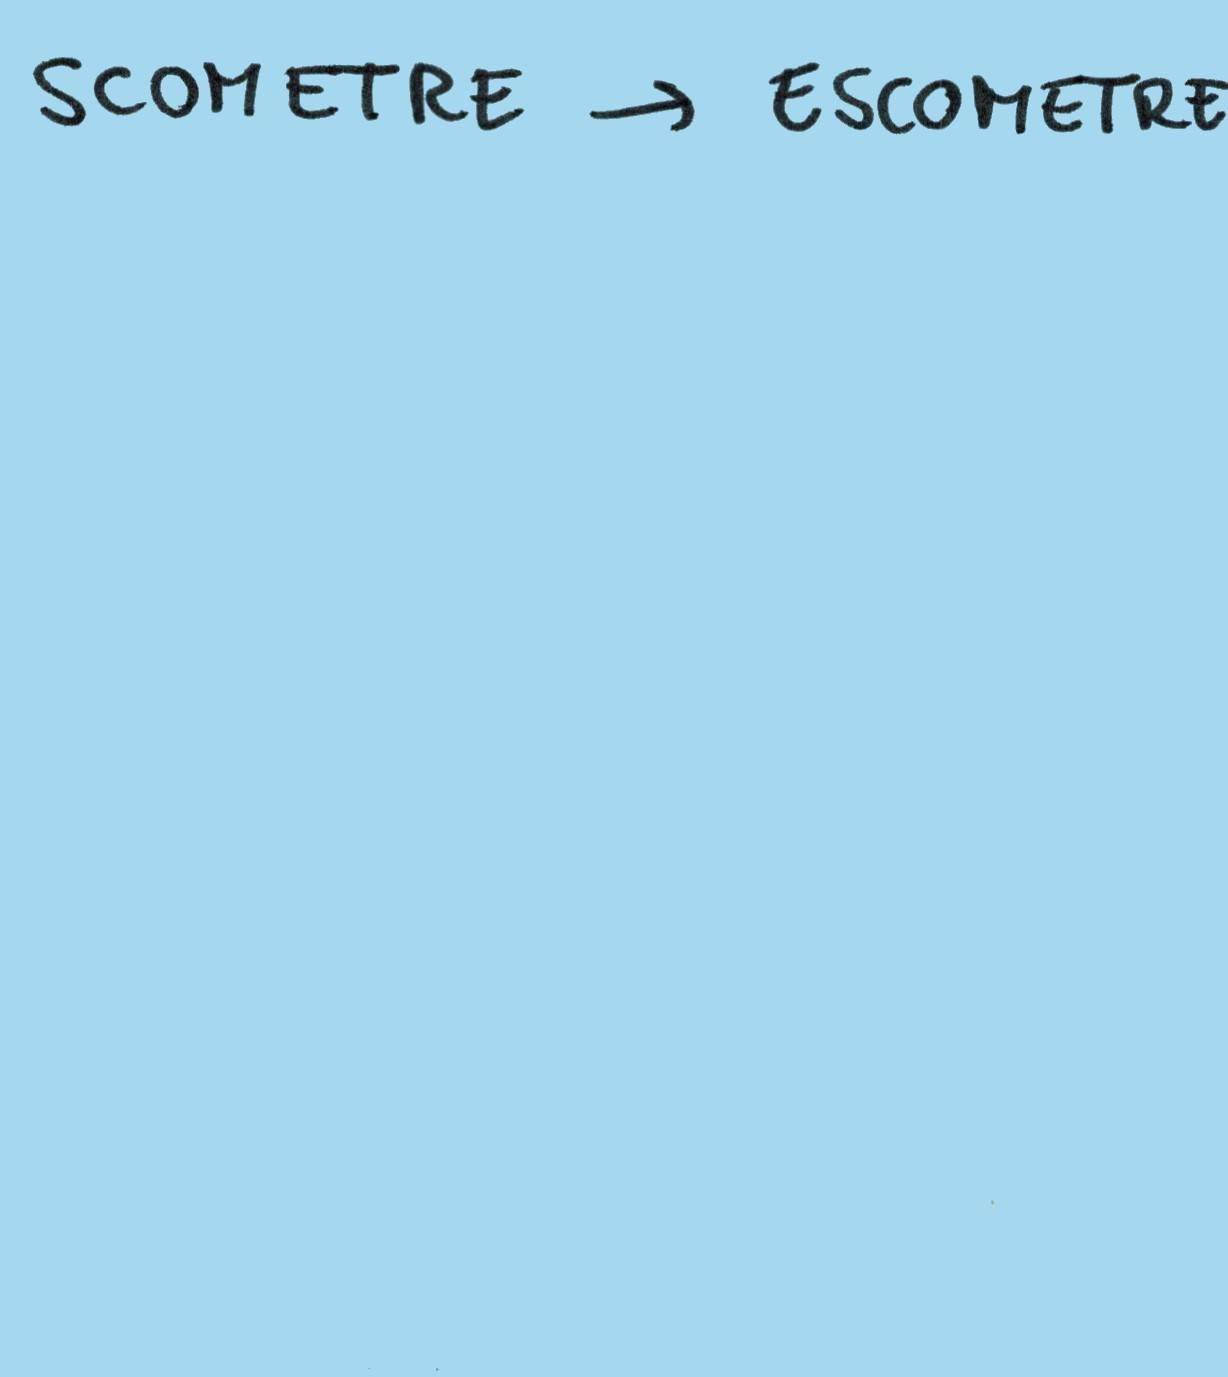 SCOMETRE → ESCOMETRE